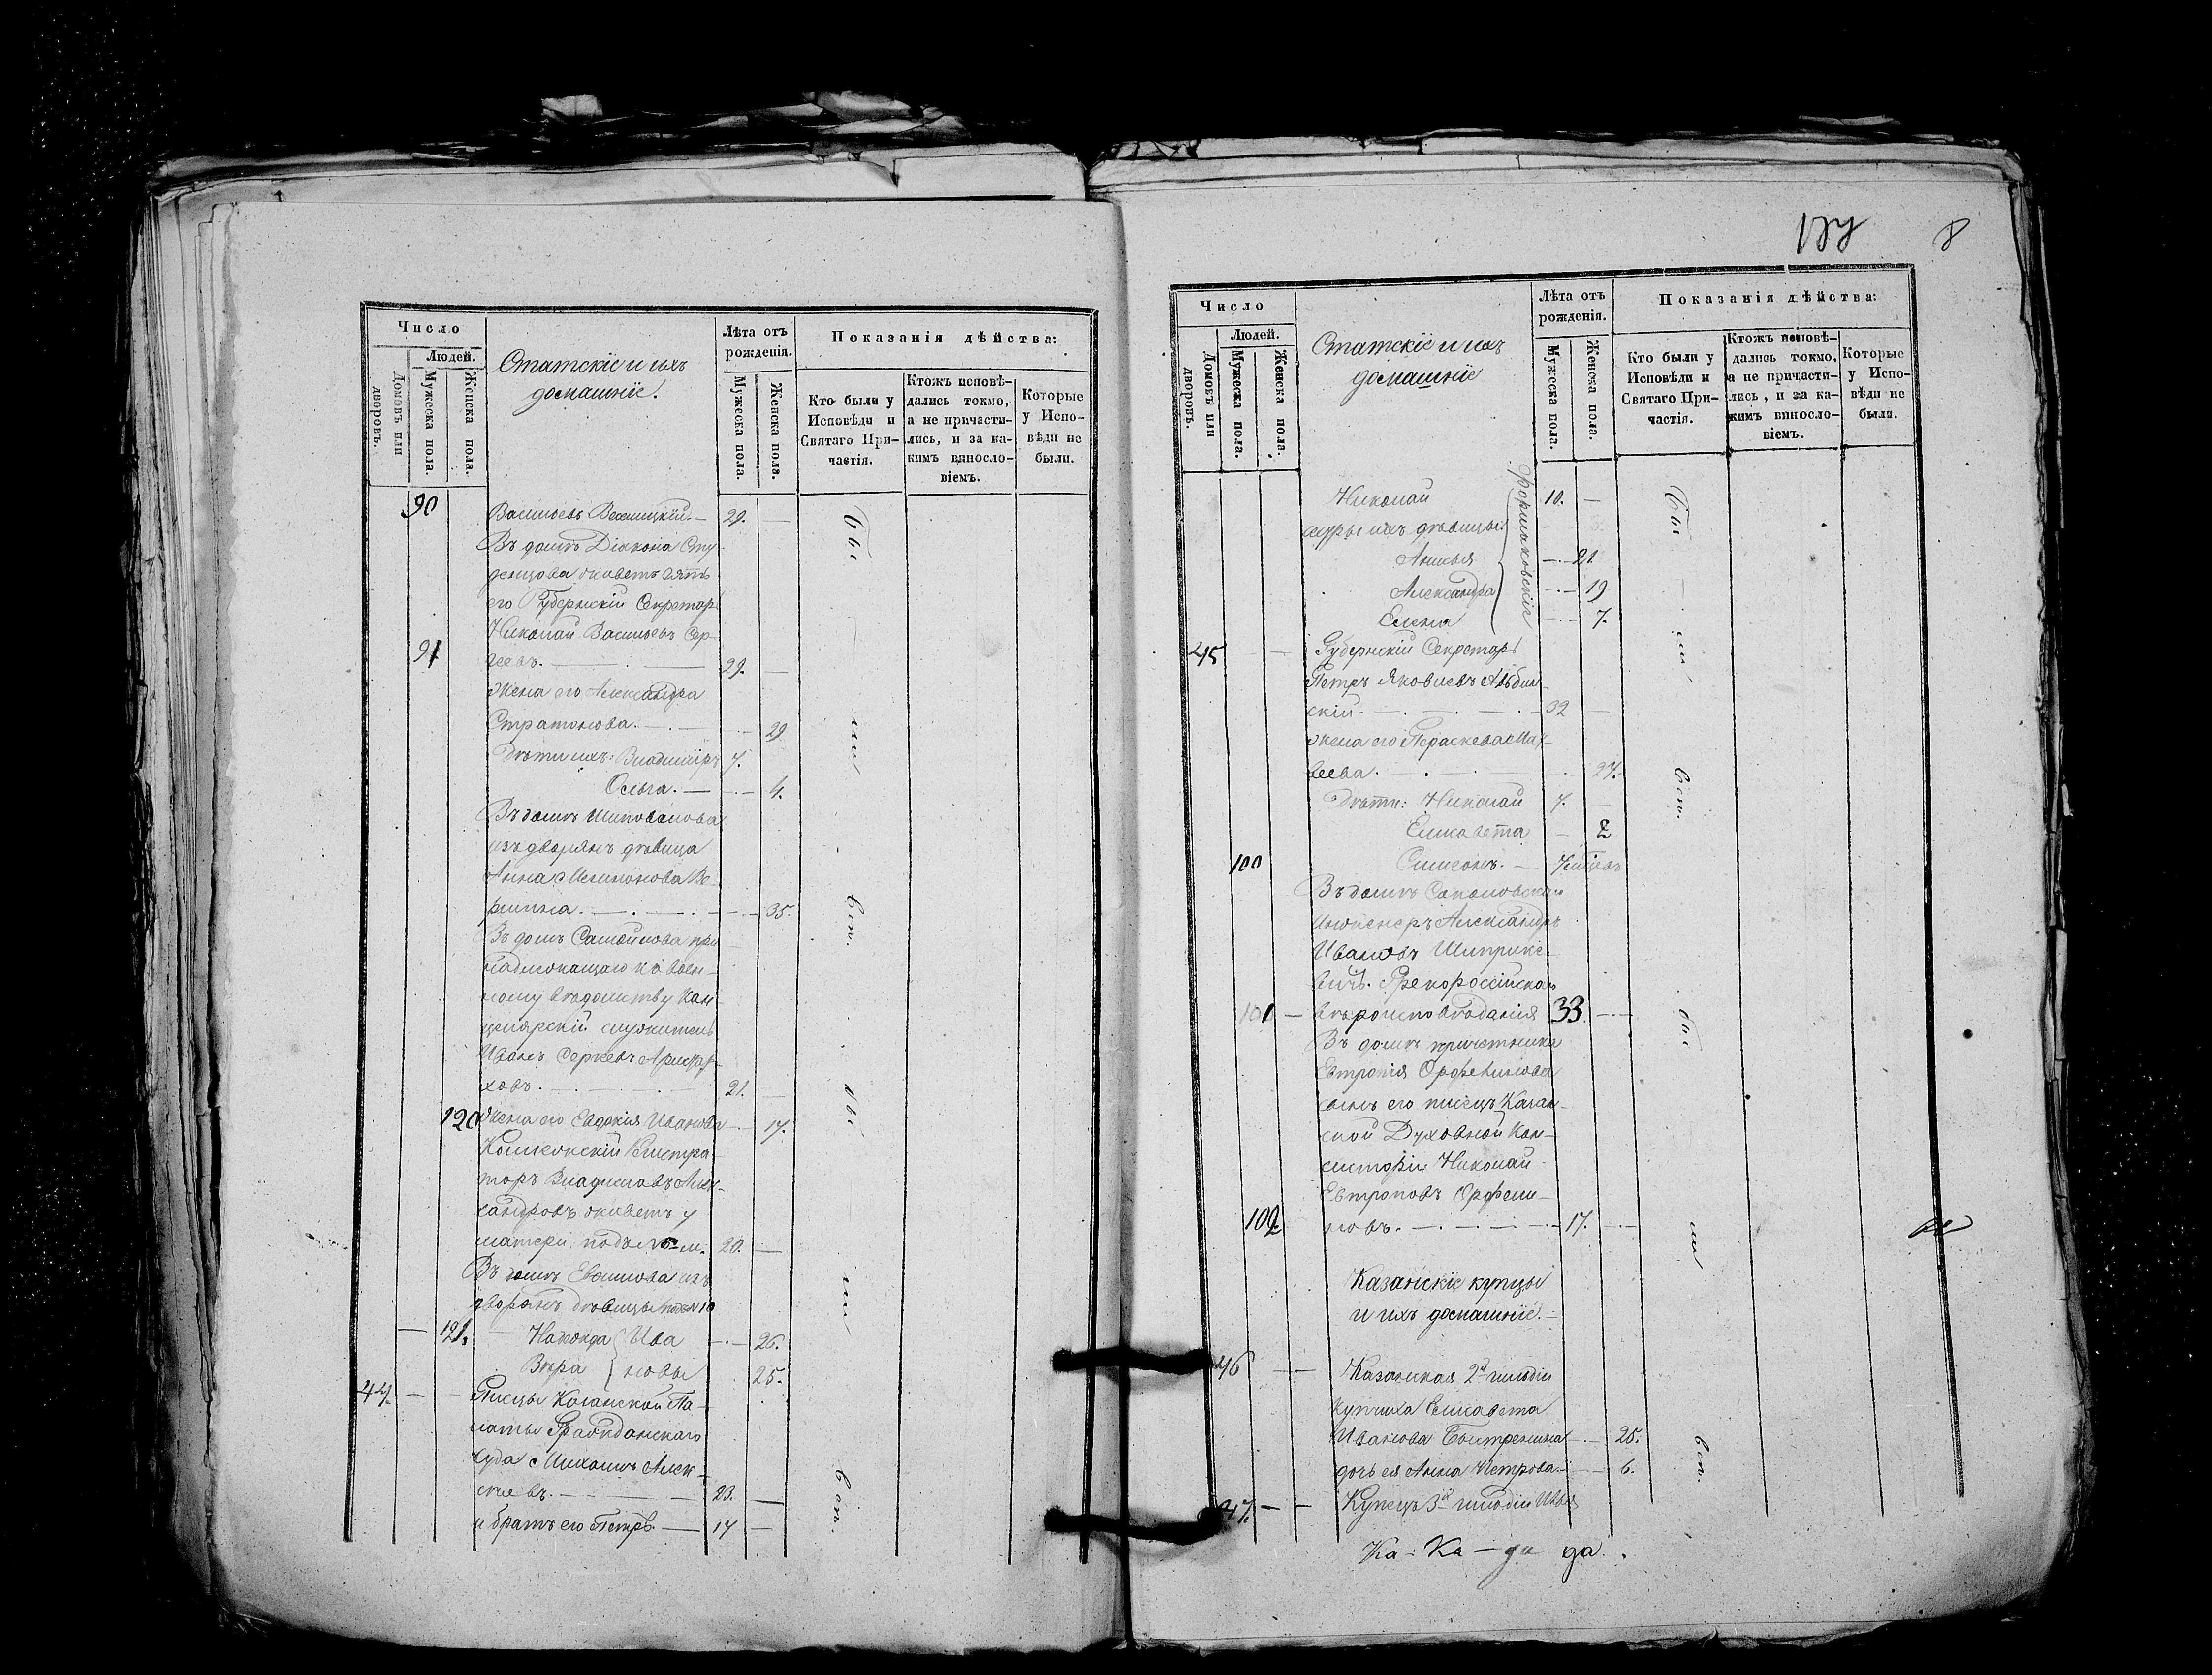 Число
Людей.
Домовъ или дворовъ.
Мужеска пола.
Женска пола.
Статскіе и ихъ
домашніе.
Лѣта отъ
рожденія.
Мужеска пола.
Женска пола.
Показанія дѣйства:
Кто были у
Исповѣди и
Святаго При-
частія.
Ктожъ исповѣ-
дались токмо,
а не причасти-
лись, и за ка-
кимъ виносло-
віемъ.
Которые
у Испо-
вѣди не
были.
90 Васильевъ — 29. —
Въ домѣ Діакона Сту-
денцова живетъ зять
его Губернскій Секретарь
Николай Васильевъ Сер-
91 геевъ. — 29. —
жена его Александра
Стратонова. — 29
Дѣти ихъ: Владиміръ 7.
Ольга. — 4.
Въ домѣ Шиповалова
изъ дворянъ дѣвица
Анна
— 35.
Въ домѣ Самойлова при-
надлежащаго къ воен-
ному вѣдомству Кан-
целярскій служитель
Иванъ Сергеевъ Аристар-
ховъ. — 21. —
120 жена его Евдокія Иванова — 17.
Коллежскій Регистра-
торъ Владиславъ Алек-
сандровъ живетъ у
матери подъ № м. 20. —
Въ домѣ изъ
дворянъ дѣвицы подъ № 10
— 121. Надежда } Ива — 26.
Вѣра } новы 25.
44. — — Писцы Казанской Па-
латы Гражданскаго
Суда Михаилъ Алек-
сѣевъ. — 23. —
и братъ его Петръ. — 17 —
были
у
исп.
были
у
исп.
8
Число
Людей.
Домовъ или дворовъ.
Мужеска пола.
Женска пола.
Статскіе и ихъ
домашніе
Лѣта отъ
рожденія.
Мужеска пола.
Женска пола.
Показанія дѣйства:
Кто были у
Исповѣди и
Святаго При-
частія.
Ктожъ исповѣ-
дались токмо,
а не причасти-
лись, и за ка-
кимъ виносло-
віемъ.
Которые
у Испо-
вѣди не
были.
Николай 10. —
сестры ихъ дѣвицы
— 21.
Александра — 19
Елена — 7.
Формаковскіе
45 — Губернскій Секретарь
Петръ Яковлевъ Альбин-
скій. — 32 —
жена его Параскева Мат-
веева. — 27.
Дѣти: Николай 7. —
Елисавета — 2
100 Симеонъ. —
Въ домѣ Соколовскаго
Инженеръ Александръ
Ивановъ
вичъ. Грекороссійскаго
101 — вѣроисповѣданія 33. —
Въ домѣ причетника
Евтропія
сынъ его писецъ Казан-
ской Духовной Кон-
систоріи Николай
Евтроповъ
102 новъ. — 17. —
Казанскіе купцы
и ихъ домашніе. —
46 — Казанская 2й гильдіи
купчиха Елисавета
Иванова — 25.
дочь ея Анна Петрова. — 6.
47. — — Купецъ 3й гильдіи Ива
Ка-Ка-да да.